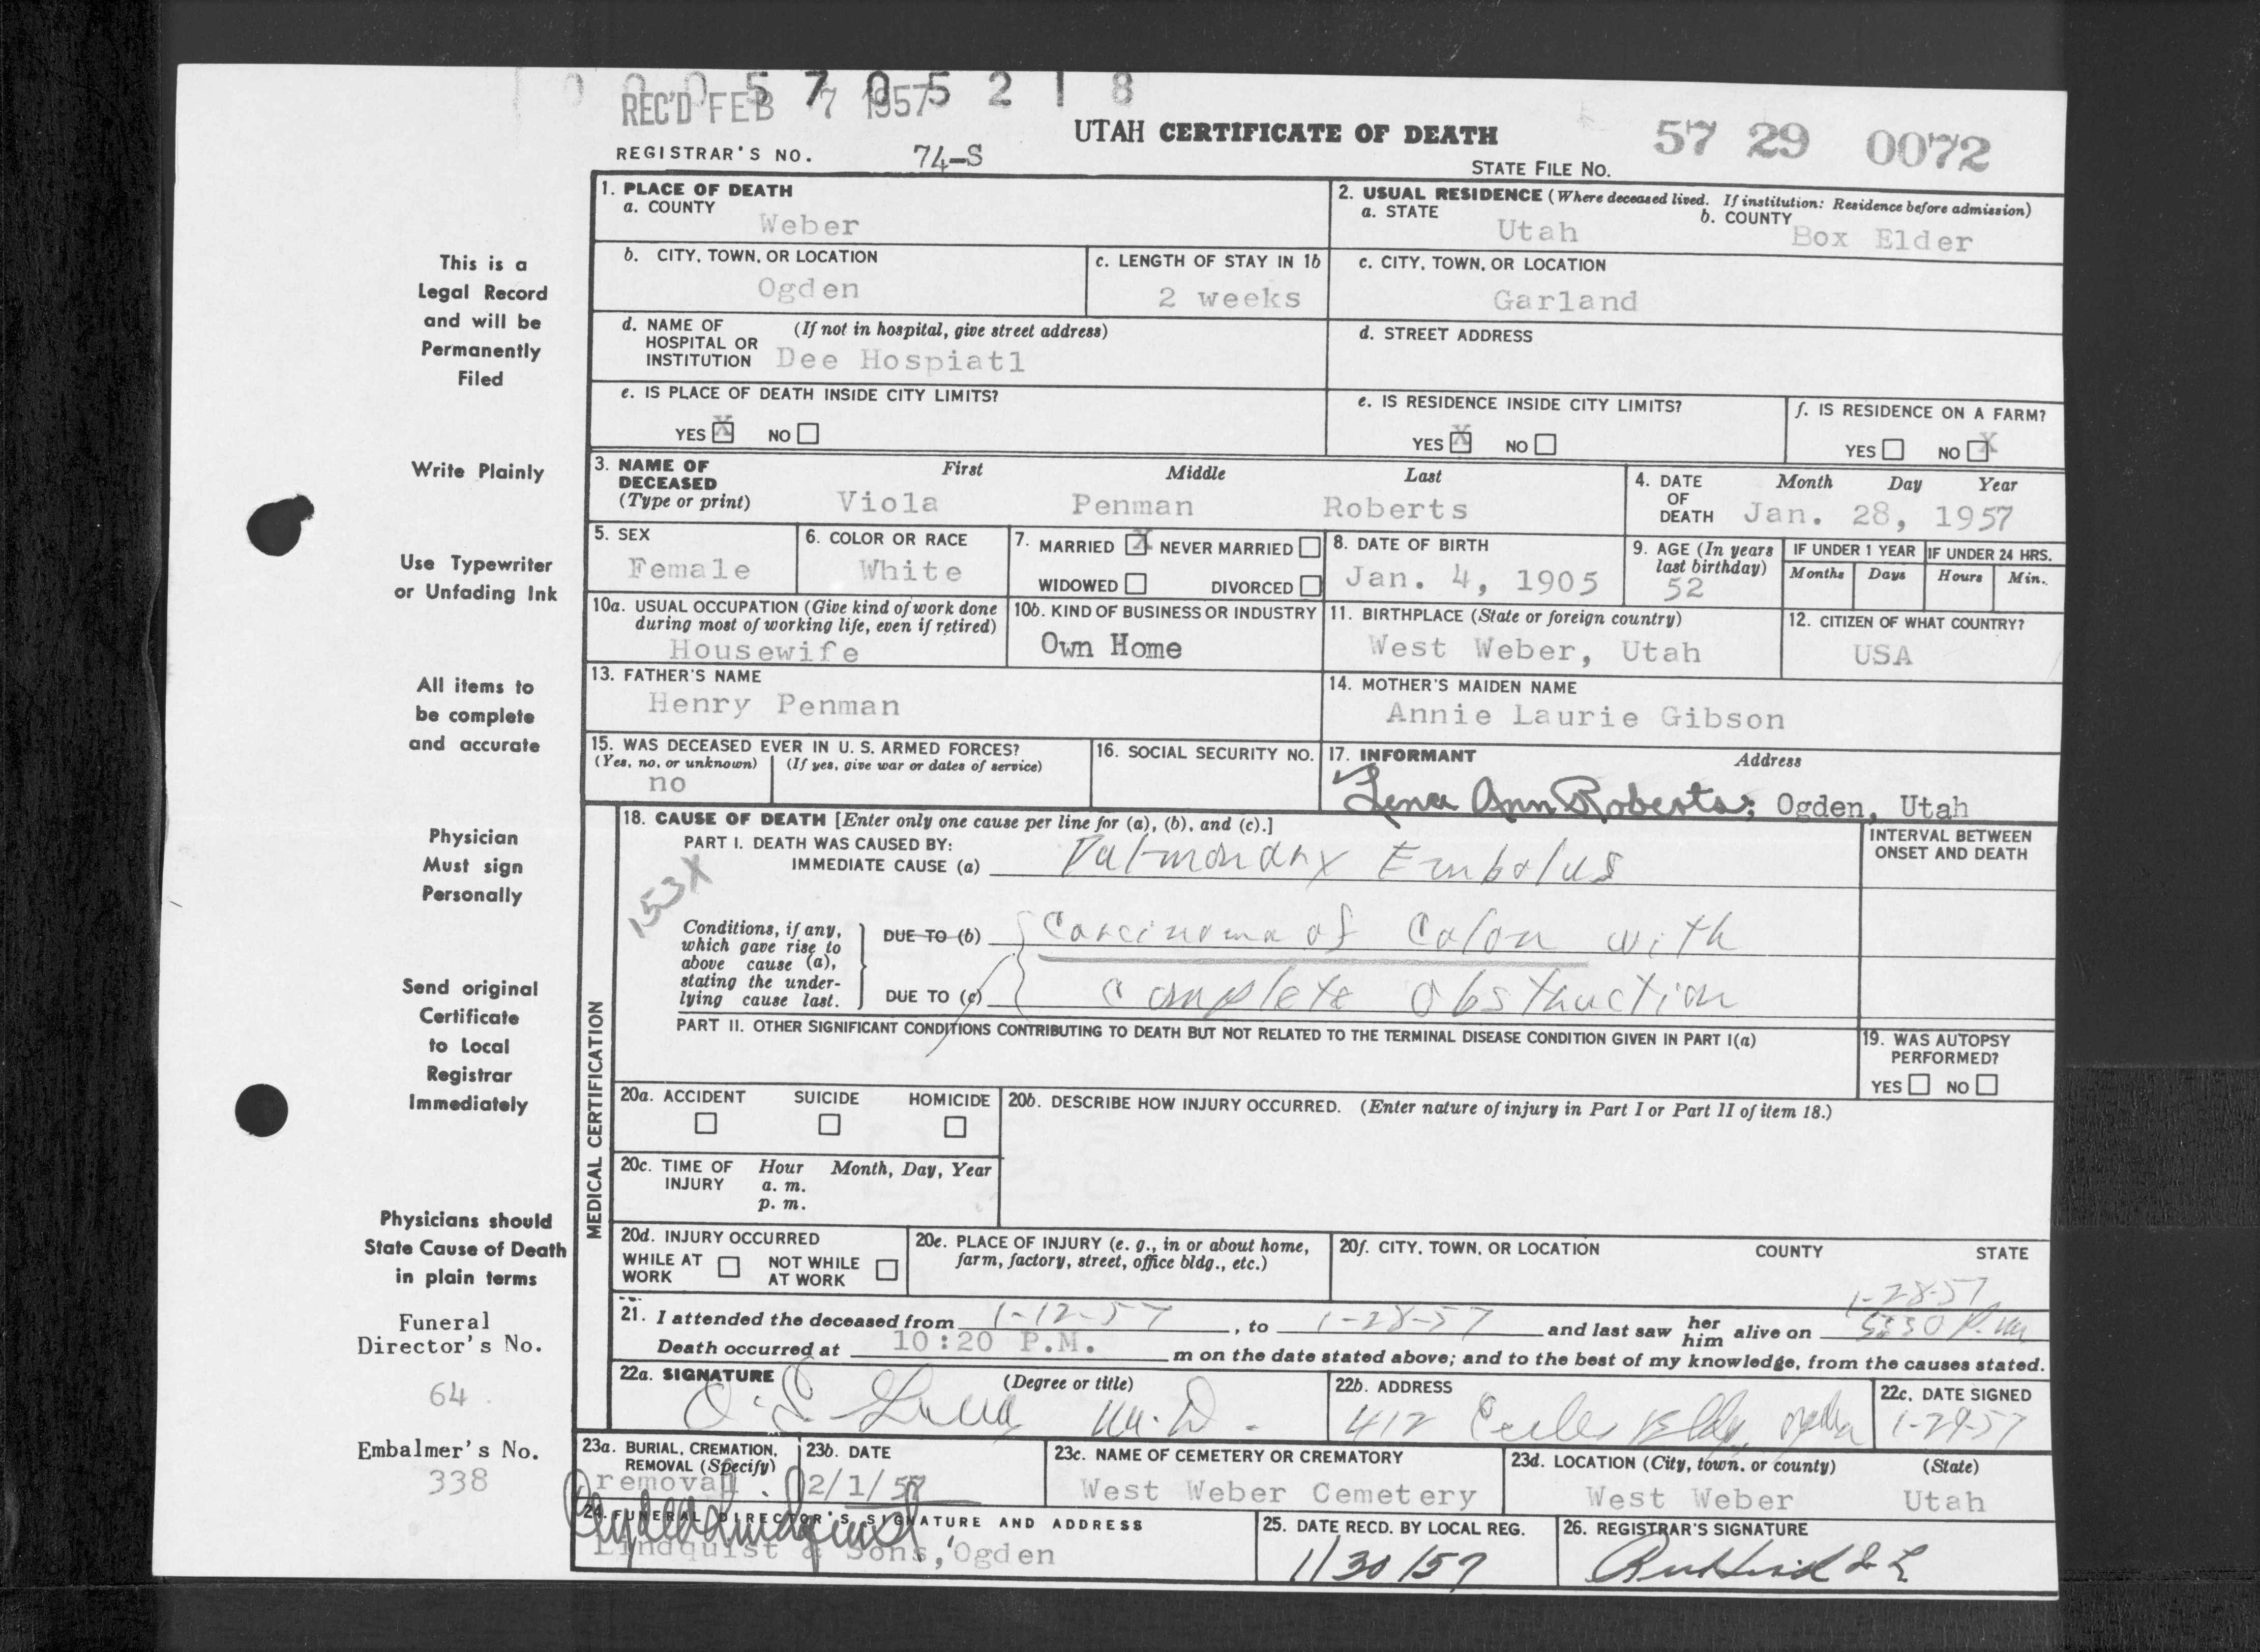 0 0 0 5 7 0 5 2 1 8
REC'D FEB 7 1957
UTAH CERTIFICATE OF DEATH
57 29 0072
REGISTRAR'S NO. 74-S
STATE FILE NO.
1. PLACE OF DEATH
a. COUNTY
Weber
2. USUAL RESIDENCE (Where deceased lived. If institution: Residence before admission)
a. STATE
Utah
b. COUNTY
Box Elder
b. CITY, TOWN, OR LOCATION
Ogden
c. LENGTH OF STAY IN 1b
2 weeks
c. CITY, TOWN, OR LOCATION
Garland
d. NAME OF (If not in hospital, give street address)
HOSPITAL OR
INSTITUTION Dee Hospiatl
d. STREET ADDRESS
e. IS PLACE OF DEATH INSIDE CITY LIMITS?
YES X NO
e. IS RESIDENCE INSIDE CITY LIMITS?
YES X NO
f. IS RESIDENCE ON A FARM?
YES NO X
3. NAME OF First Middle Last
DECEASED
(Type or print) Viola Penman Roberts
4. DATE Month Day Year
OF
DEATH Jan. 28, 1957
5. SEX
Female
6. COLOR OR RACE
White
7. MARRIED X NEVER MARRIED
WIDOWED DIVORCED
8. DATE OF BIRTH
Jan. 4, 1905
9. AGE (In years
last birthday)
52
IF UNDER 1 YEAR
Months Days
IF UNDER 24 HRS.
Hours Min.
10a. USUAL OCCUPATION (Give kind of work done
during most of working life, even if retired)
Housewife
10b. KIND OF BUSINESS OR INDUSTRY
Own Home
11. BIRTHPLACE (State or foreign country)
West Weber, Utah
12. CITIZEN OF WHAT COUNTRY?
USA
13. FATHER'S NAME
Henry Penman
14. MOTHER'S MAIDEN NAME
Annie Laurie Gibson
15. WAS DECEASED EVER IN U. S. ARMED FORCES?
(Yes, no, or unknown) (If yes, give war or dates of service)
no
16. SOCIAL SECURITY NO.
17. INFORMANT Address
Lena Ann Roberts; Ogden, Utah
MEDICAL CERTIFICATION
18. CAUSE OF DEATH [Enter only one cause per line for (a), (b), and (c).]
PART I. DEATH WAS CAUSED BY:
IMMEDIATE CAUSE (a) Pulmonary Embolus
INTERVAL BETWEEN
ONSET AND DEATH
153X
Conditions, if any,
which gave rise to
above cause (a),
stating the under-
lying cause last.
DUE TO (b) Carcinoma of Colon with
DUE TO (c) complete obstruction
PART II. OTHER SIGNIFICANT CONDITIONS CONTRIBUTING TO DEATH BUT NOT RELATED TO THE TERMINAL DISEASE CONDITION GIVEN IN PART I(a)
19. WAS AUTOPSY
PERFORMED?
YES NO
20a. ACCIDENT SUICIDE HOMICIDE
20b. DESCRIBE HOW INJURY OCCURRED. (Enter nature of injury in Part I or Part II of item 18.)
20c. TIME OF Hour Month, Day, Year
INJURY a. m.
p. m.
20d. INJURY OCCURRED
WHILE AT
WORK
NOT WHILE
AT WORK
20e. PLACE OF INJURY (e. g., in or about home,
farm, factory, street, office bldg., etc.)
20f. CITY, TOWN, OR LOCATION COUNTY STATE
1-28-57
21. I attended the deceased from 1-12-57, to 1-28-57 and last saw her him alive on 5:30 P.m
Death occurred at 10:20 P.M. m on the date stated above; and to the best of my knowledge, from the causes stated.
22a. SIGNATURE (Degree or title)
M.D.
22b. ADDRESS
412 Bldg. Ogden
22c. DATE SIGNED
1-29-57
23a. BURIAL, CREMATION,
REMOVAL (Specify)
removal
23b. DATE
2/1/57
23c. NAME OF CEMETERY OR CREMATORY
West Weber Cemetery
23d. LOCATION (City, town, or county) (State)
West Weber Utah
24. FUNERAL DIRECTOR'S SIGNATURE AND ADDRESS
Lindquist & Sons, Ogden
25. DATE RECD. BY LOCAL REG.
1/30/57
26. REGISTRAR'S SIGNATURE
This is a
Legal Record
and will be
Permanently
Filed
Write Plainly
Use Typewriter
or Unfading Ink
All items to
be complete
and accurate
Physician
Must sign
Personally
Send original
Certificate
to Local
Registrar
Immediately
Physicians should
State Cause of Death
in plain terms
Funeral
Director's No.
64
Embalmer's No.
338